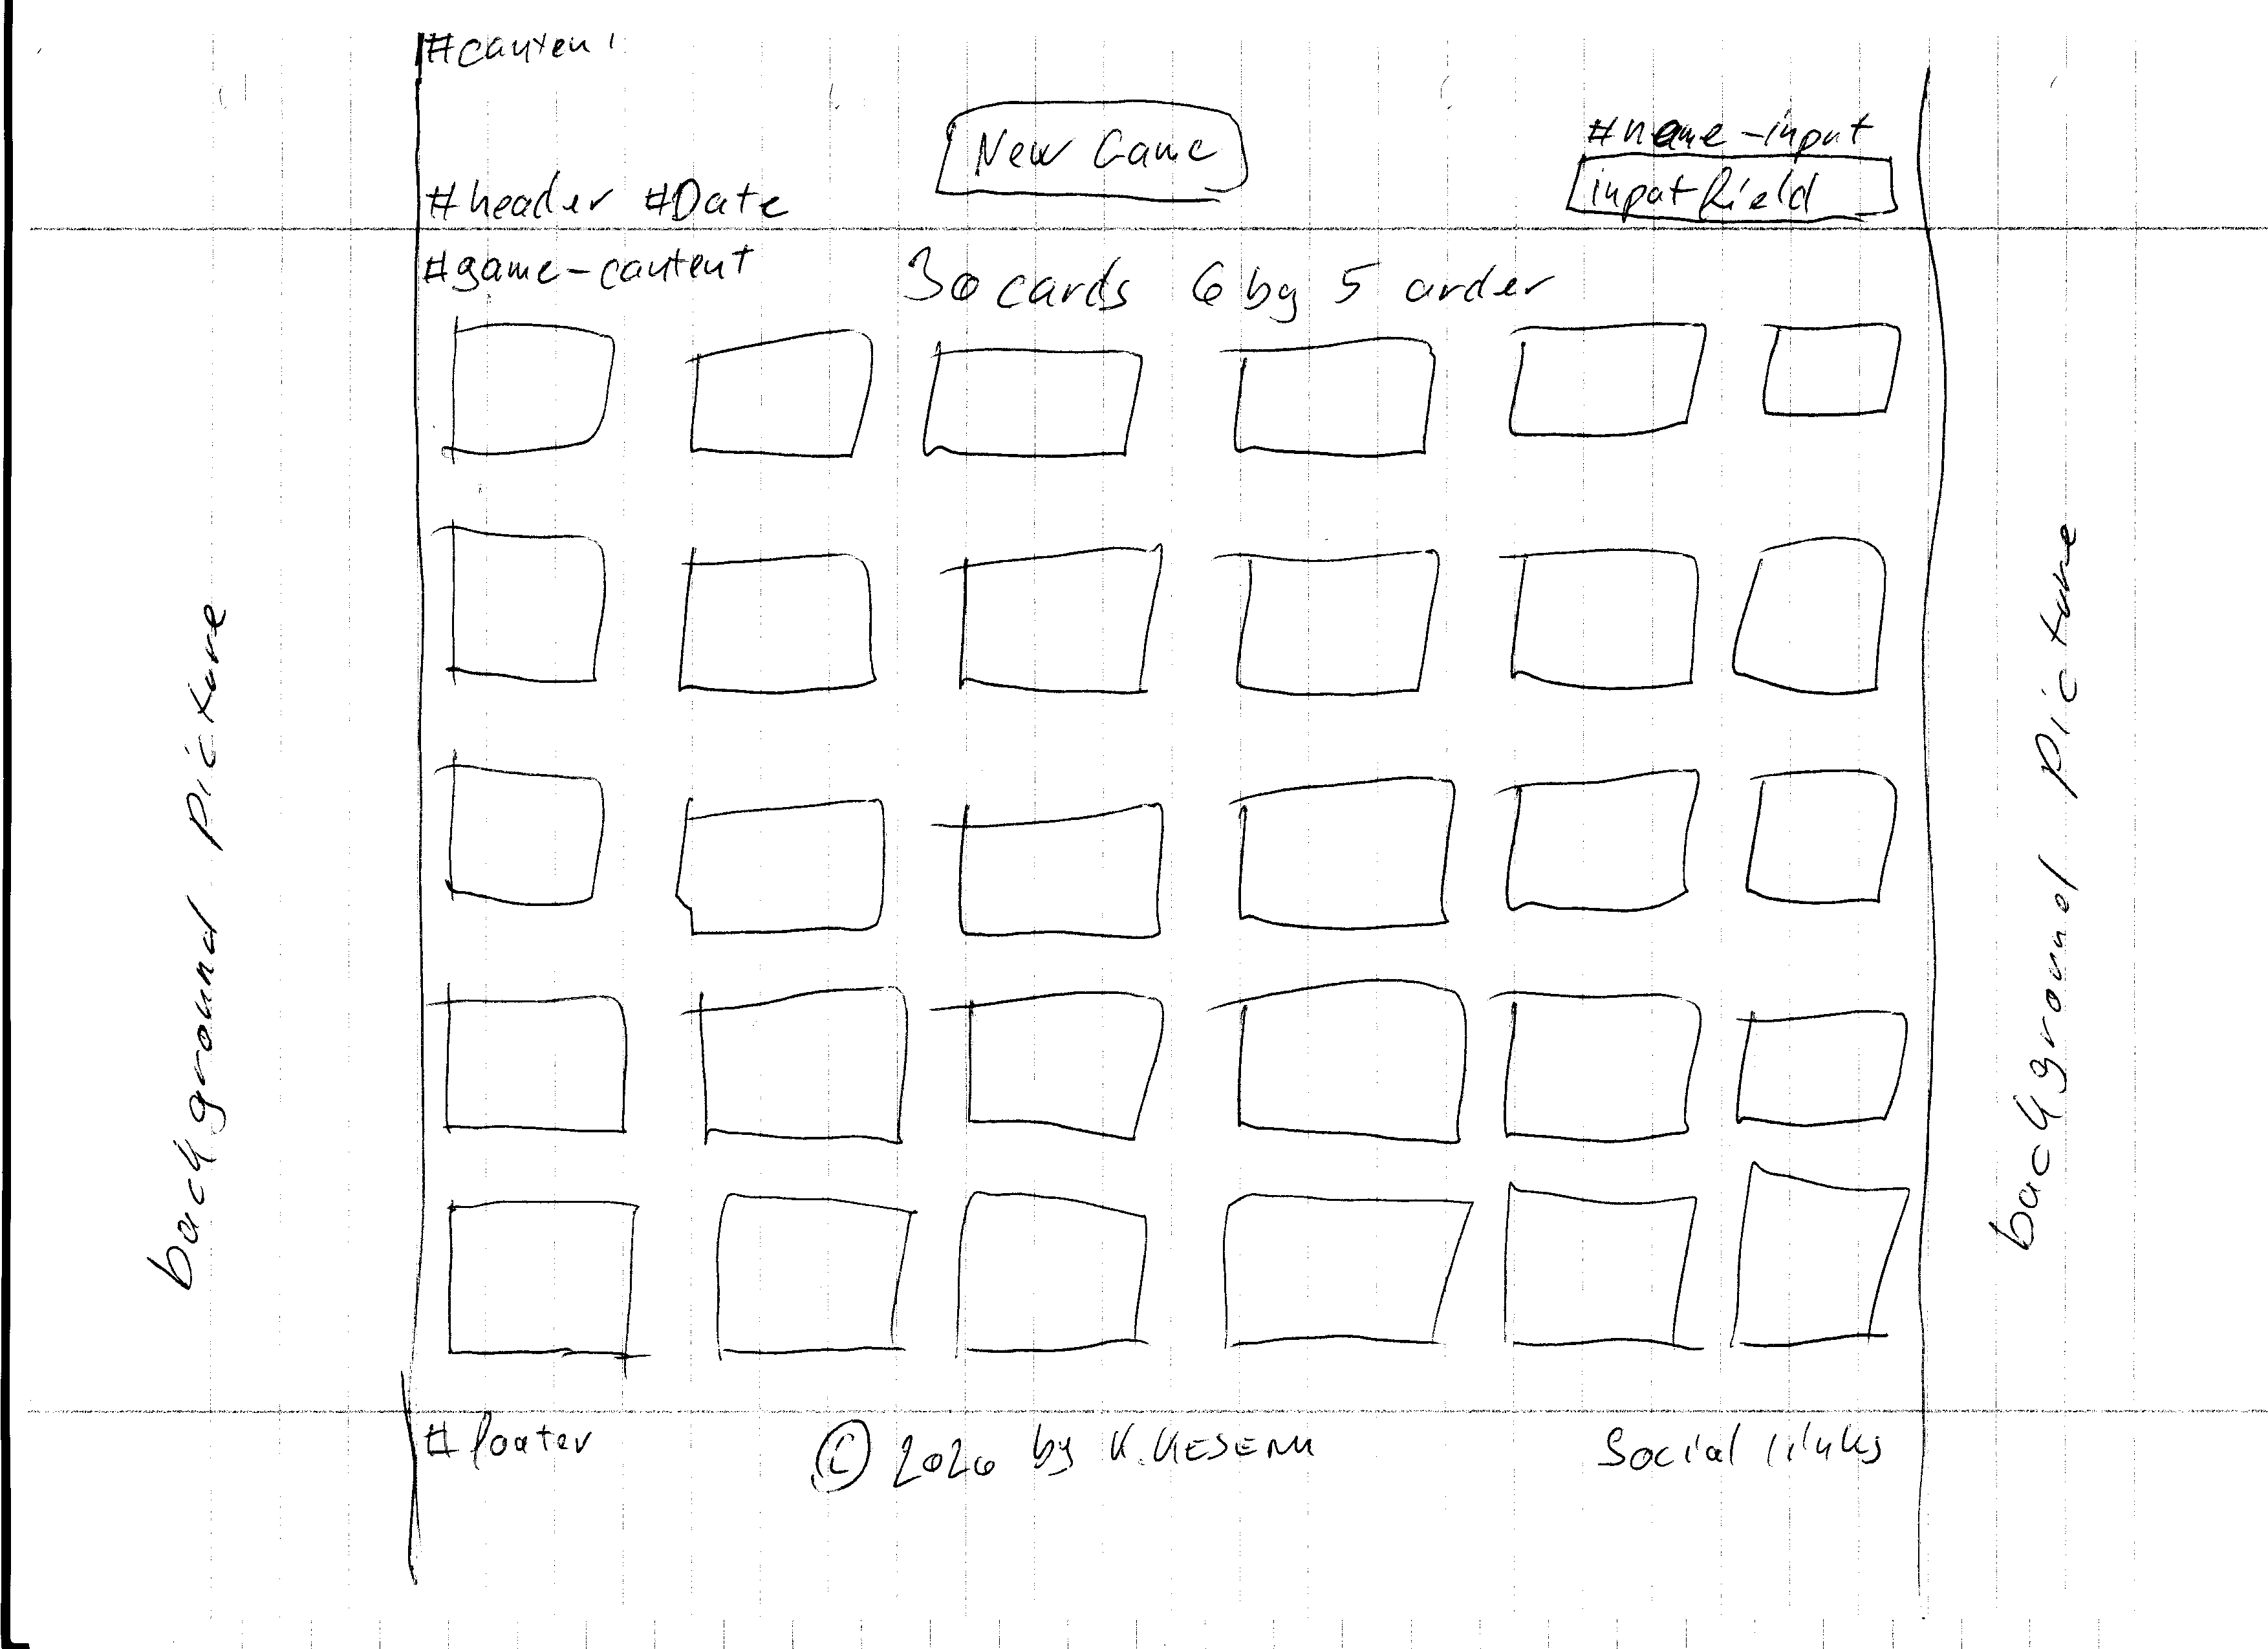 #content
New Game
#name-input
input field
#header #Date
#game-content
30 cards 6 by 5 order
background picture
background picture
#footer
© 2020 by K.KESENU
Social links